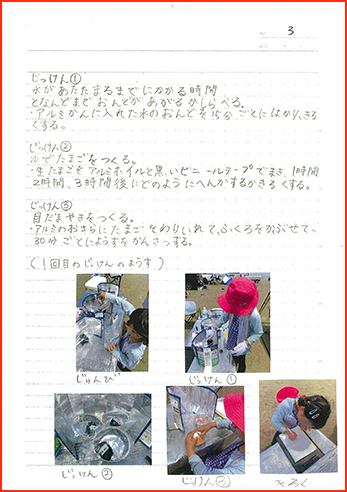 3
じっけん①
水があたたまるまでにかかる時間
となんどまでおんどがあがるかしらべる。
・アルミかんに入れた水のおんどを15分ごとにはかり、きろ
くする。
じっけん②
ゆでたまごをつくる。
・生たまごをアルミホイルと黒いビニールテープでまき、1時間
2時間、3時間後にどのようにへんかするかきろくする。
じっけん③
目だまやきをつくる。
・アルミのおさらにたまごをわりいれて、ふくろをかぶせて、
30分ごとにようすをかんさつする。
(1回目のじっけんのようす)
じゅんび
じっけん①
じっけん②
じっけん③
きろく